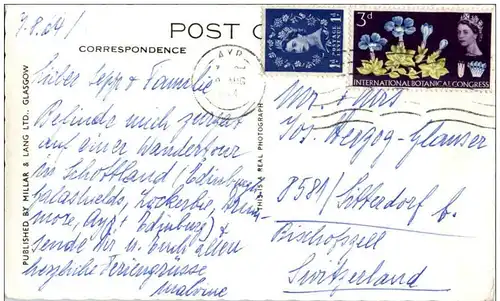 9.8.64/
POST
CORRESPONDENCE
Lieber Sepp + Familie
Befinde mich zurzeit
auf einer Wandertour
in Schottland / Edinburg,
Galashields, Lockerbie,
more, Ayr, Edinburg) +
sende Ihr u. Euch allen
herzliche Feriengrüsse
Malvine
PUBLISHED BY MILLAR & LANG LTD., GLASGOW
THIS IS A REAL PHOTOGRAPH
AYR
POSTAGE REVENUE
1D
3d
INTERNATIONAL BOTANICAL CONGRESS
Mr. + Mrs
Jos. Herzog-Glauser
8581/ Sitterdorf b.
Bischofszell
Switzerland